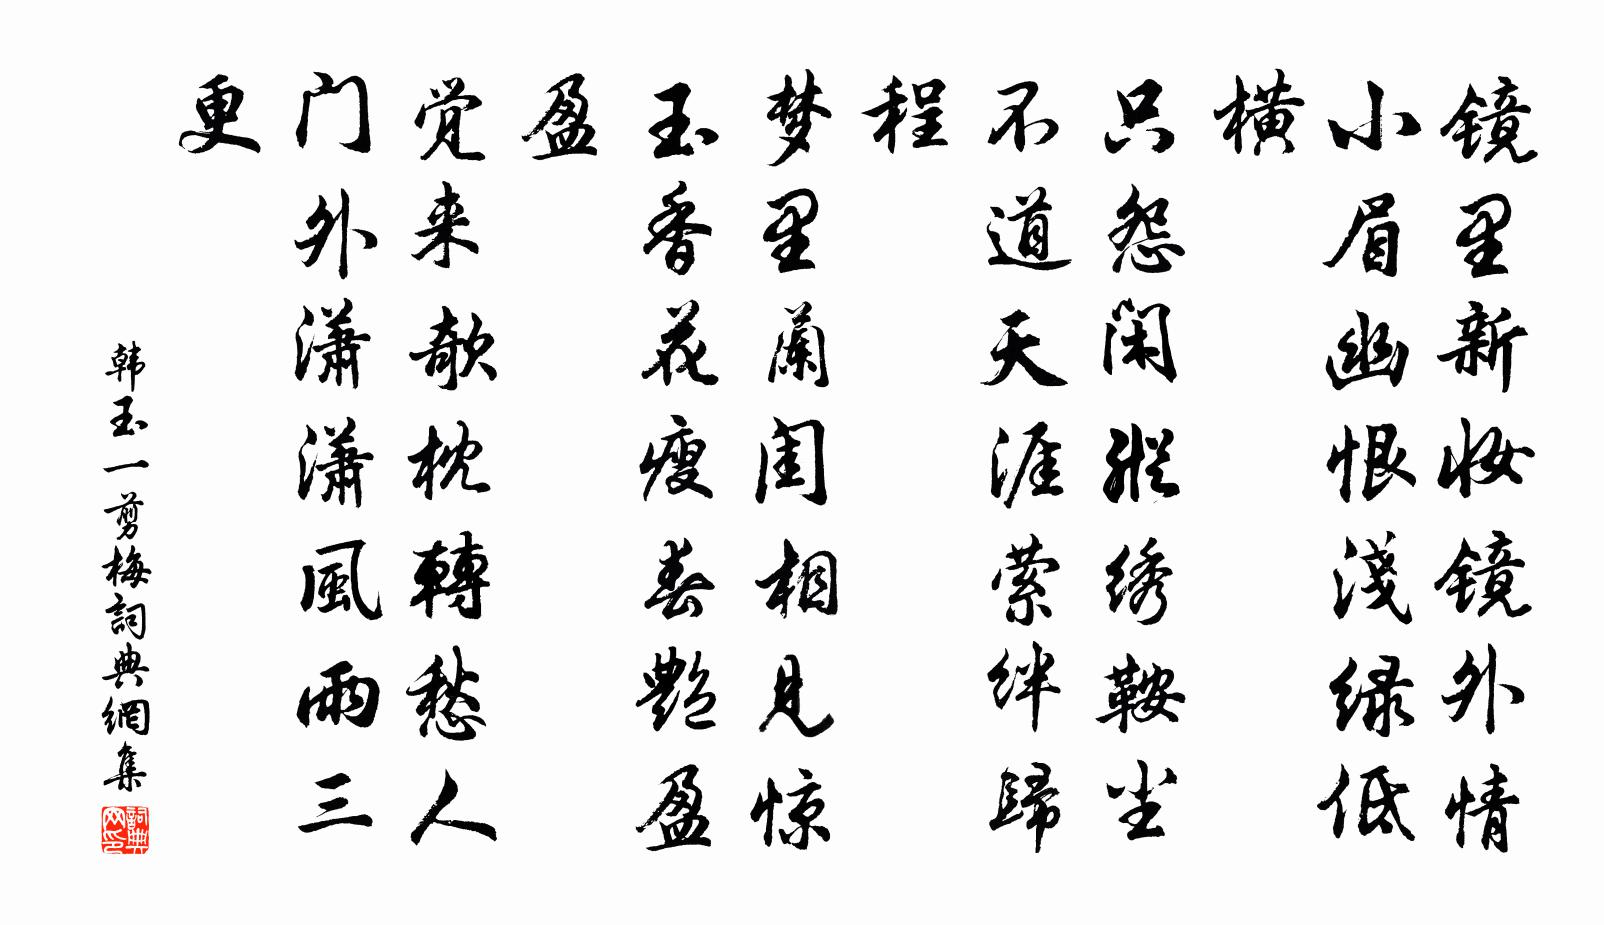 镜里新妆镜外情
小眉幽恨淺绿低
横
只怨闲縱绣鞍尘
不道天涯萦绊歸
程
梦里蘭闺相见惊
玉香花瘦春艷盈
盈
觉来欹枕轉愁人
门外潇潇風雨三
更
韩玉一剪梅詞典網集
詞典网印